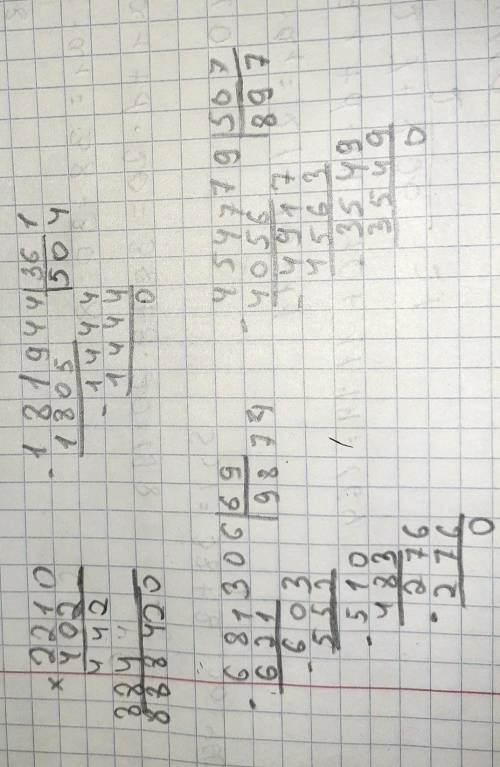 × 2210
402
442
884
888420
- 181944 | 361
1805 | 504
- 1444
1444
0
- 681306 | 69
621 | 9874
- 603
552
- 510
483
- 276
276
0
- 454779 | 507
4056 | 897
- 4917
4563
- 3549
3549
0